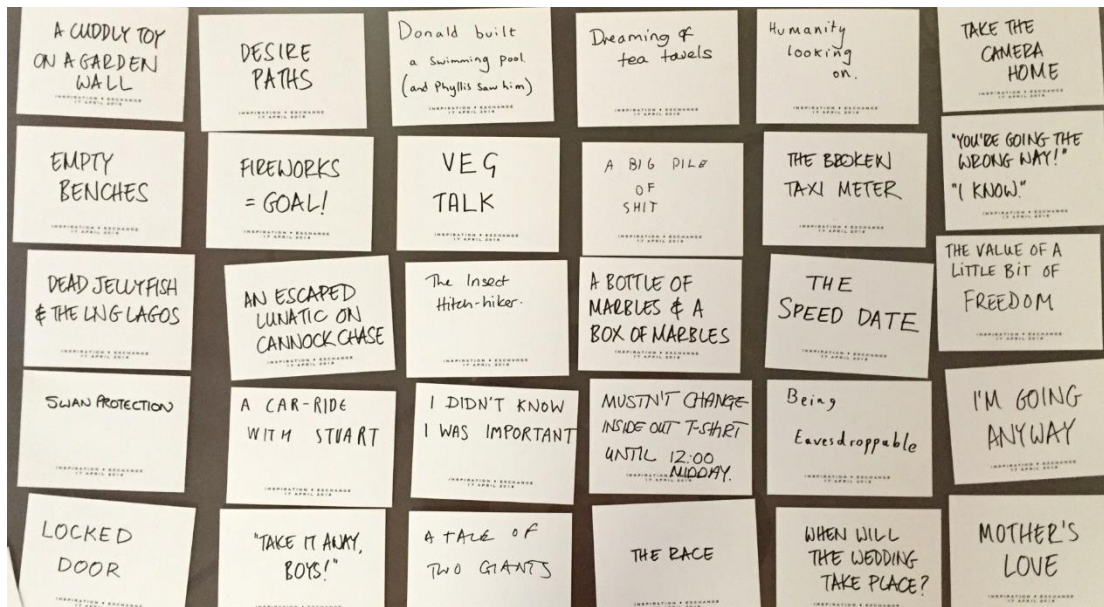 A CUDDLY TOY
ON A GARDEN
WALL
INSPIRATION * EXCHANGE
17 APRIL 2018
DESIRE
PATHS
INSPIRATION * EXCHANGE
17 APRIL 2018
Donald built
a swimming pool
(and Phyllis saw him)
INSPIRATION * EXCHANGE
17 APRIL 2018
Dreaming of
tea towels
INSPIRATION * EXCHANGE
17 APRIL 2018
Humanity
looking
on.
INSPIRATION * EXCHANGE
17 APRIL 2018
TAKE THE
CAMERA
HOME
INSPIRATION * EXCHANGE
17 APRIL 2018
EMPTY
BENCHES
INSPIRATION * EXCHANGE
17 APRIL 2018
FIREWORKS
= GOAL!
INSPIRATION * EXCHANGE
17 APRIL 2018
VEG
TALK
INSPIRATION * EXCHANGE
17 APRIL 2018
A BIG PILE
OF
SHIT
INSPIRATION * EXCHANGE
17 APRIL 2018
THE BROKEN
TAXI METER
INSPIRATION * EXCHANGE
17 APRIL 2018
"YOU'RE GOING THE
WRONG WAY!"
"I KNOW."
INSPIRATION * EXCHANGE
17 APRIL 2018
DEAD JELLYFISH
& THE LNG LAGOS
INSPIRATION * EXCHANGE
17 APRIL 2018
AN ESCAPED
LUNATIC ON
CANNOCK CHASE
INSPIRATION * EXCHANGE
17 APRIL 2018
The Insect
Hitch-hiker.
INSPIRATION * EXCHANGE
17 APRIL 2018
A BOTTLE OF
MARBLES & A
BOX OF MARBLES
INSPIRATION * EXCHANGE
17 APRIL 2018
THE
SPEED DATE
INSPIRATION * EXCHANGE
17 APRIL 2018
THE VALUE OF A
LITTLE BIT OF
FREEDOM
INSPIRATION * EXCHANGE
17 APRIL 2018
SWAN PROTECTION
INSPIRATION * EXCHANGE
17 APRIL 2018
A CAR-RIDE
WITH STUART
INSPIRATION * EXCHANGE
17 APRIL 2018
I DIDN'T KNOW
I WAS IMPORTANT
INSPIRATION * EXCHANGE
17 APRIL 2018
MUSTN'T CHANGE
INSIDE OUT T-SHIRT
UNTIL 12:00
MIDDAY.
INSPIRATION * EXCHANGE
17 APRIL 2018
Being
Eavesdroppable
INSPIRATION * EXCHANGE
17 APRIL 2018
I'M GOING
ANYWAY
INSPIRATION * EXCHANGE
17 APRIL 2018
LOCKED
DOOR
INSPIRATION * EXCHANGE
"TAKE IT AWAY,
BOYS!"
INSPIRATION * EXCHANGE
A TALE OF
TWO GIANTS
INSPIRATION * EXCHANGE
THE RACE
INSPIRATION * EXCHANGE
WHEN WILL
THE WEDDING
TAKE PLACE?
INSPIRATION * EXCHANGE
MOTHER'S
LOVE
INSPIRATION * EXCHANGE